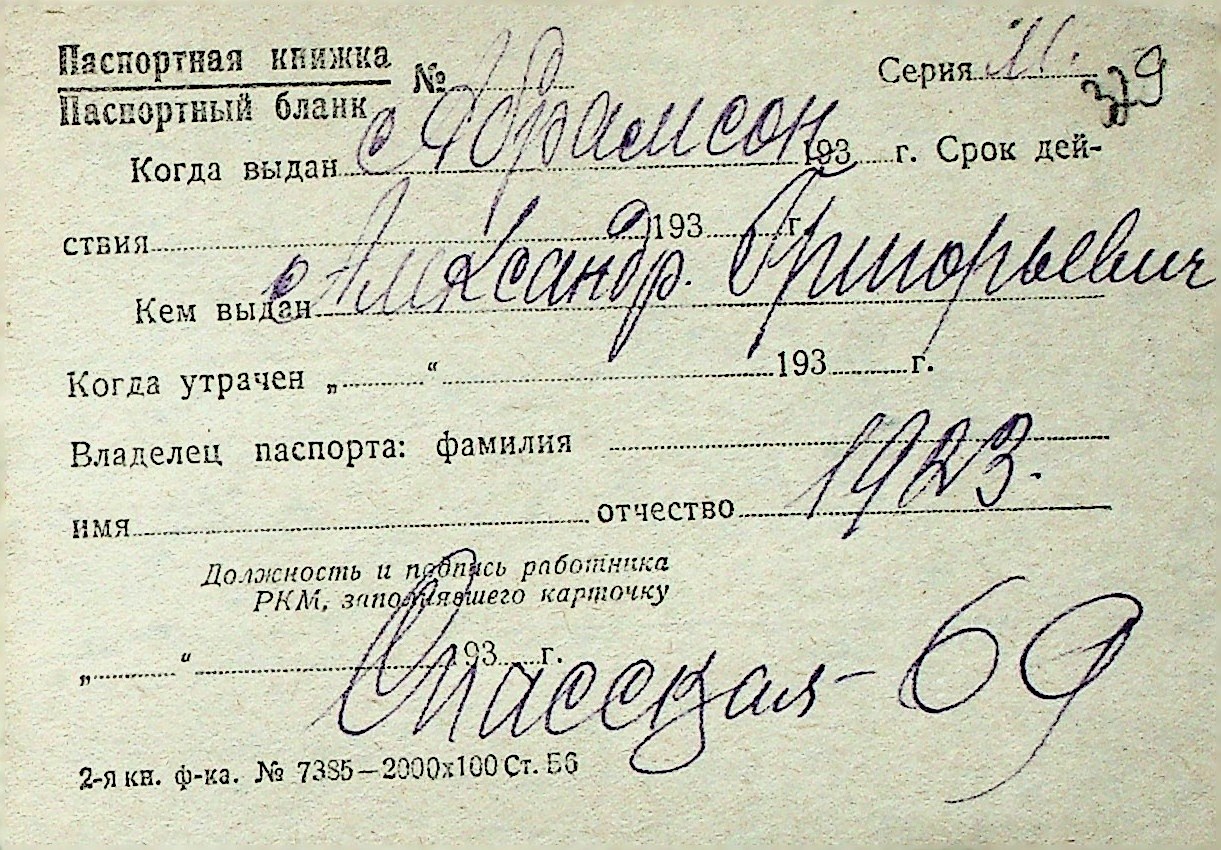 Паспортная книжка
Паспортный бланк № Серия
379
Абрамсон
Когда выдан 193 г. Срок дей-
ствия 193 г.
Александр. Григорьевич
Кем выдан
Когда утрачен „ “ 193 г.
Владелец паспорта: фамилия
1923.
имя отчество
Должность и подпись работника
РКМ, заполнявшего карточку
„ “ 193 г.
Спасская – 69
2-я кн. ф-ка. № 7385—2000х100 Ст. Б6